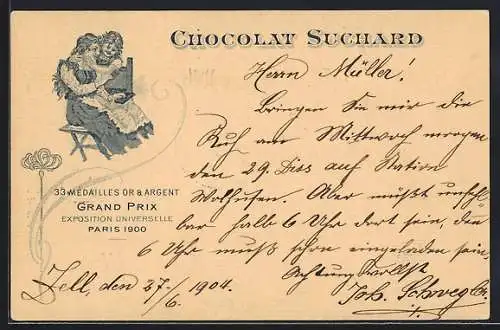 CHOCOLAT SUCHARD
33 MÉDAILLES OR & ARGENT
GRAND PRIX
EXPOSITION UNIVERSELLE
PARIS 1900
Herrn Müller!
Bringen Sie mir die
Kuh am Mittwoch morgen
den 29. Diss auf Station
Wolhusen. Aber müßt unfehl
bar halb 6 Uhr dort sein, den
6 Uhr muß schon eingeladen sein
Achtungsvollst
Zell, den 27-/6. 1904.
Joh. Schwegler